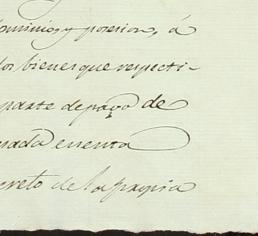 dominio, y posesion, á
los bienes que respecti-
parte de pago de
nada cuenta
creto de la propia